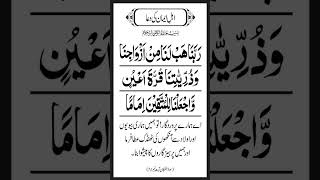 اہل ایمان کی دعا
بِسْمِ اللهِ الرَّحْمٰنِ الرَّحِيْمِ
رَبَّنَا هَبْ لَنَا مِنْ اَزْوَاجِنَا
وَذُرِّيّٰتِنَا قُرَّةَ اَعْيُنٍ
وَّاجْعَلْنَا لِلْمُتَّقِيْنَ اِمَامًا
اے ہمارے پروردگار! تو ہمیں ہماری بیویوں
اور اولاد سے آنکھوں کی ٹھنڈک عطا فرما
اور ہمیں پرہیزگاروں کا پیشوا بنا۔